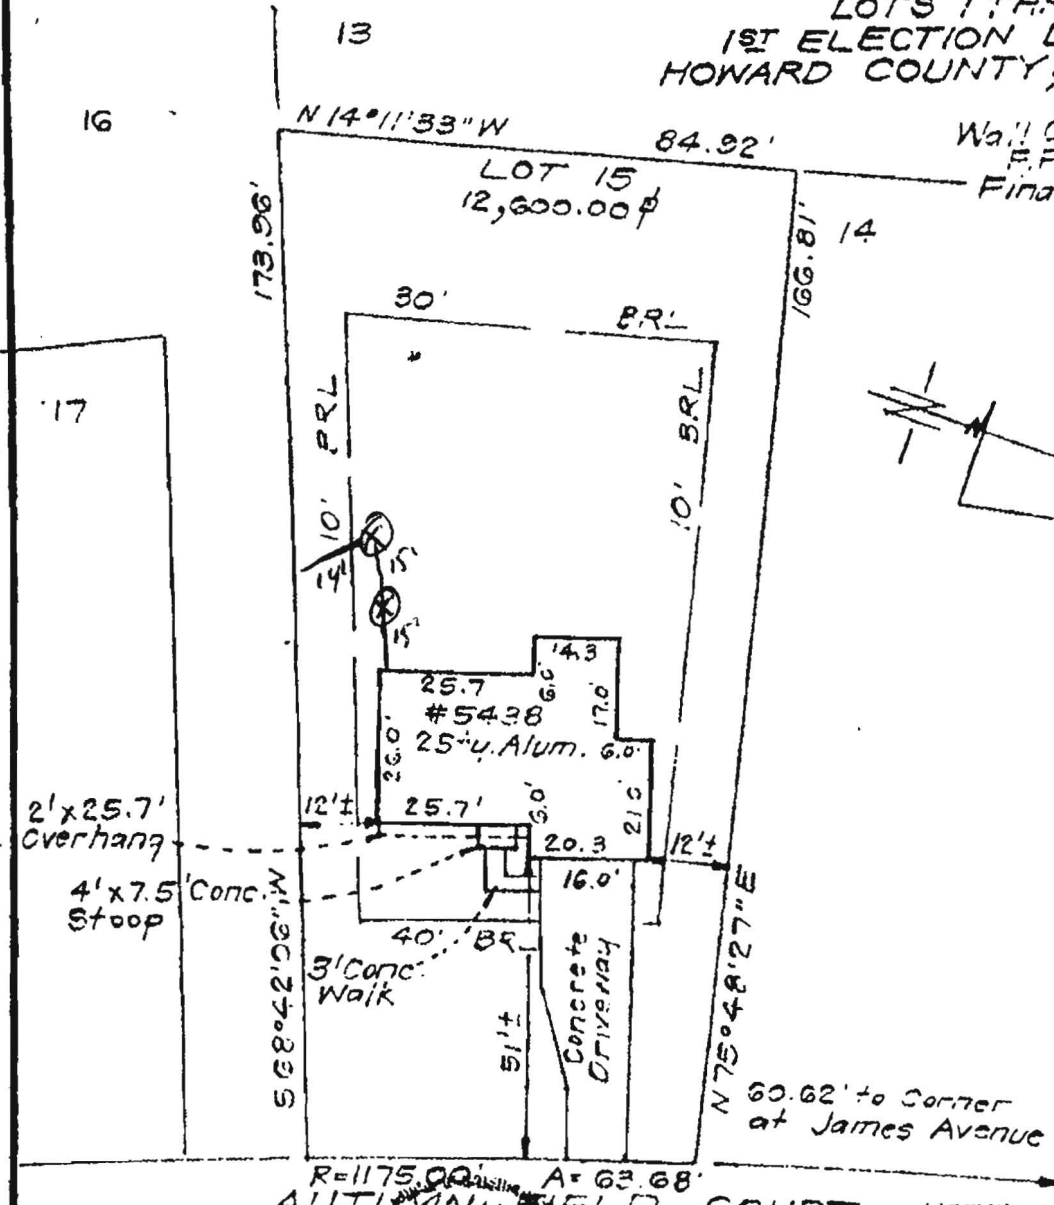 13
1ST ELECTION
HOWARD COUNTY,
16
N 14°11'33" W
84.92'
LOT 15
12,600.00
173.96'
166.81'
14
30'
BRL
17
BRL
BRL
10'
10'
14'
15'
15'
14.3
25.7
6.0'
17.0'
#5438
Alum.
6.0'
26.0'
2'x25.7'
Overhang
12'±
25.7'
6.0'
21.0'
20.3
12'±
4'x7.5' Conc.
Stoop
16.0'
40'
BRL
3' Conc.
Walk
Concrete
Driveway
51'±
S 68°42'06" W
N 75°48'27" E
60.62' to Corner
at James Avenue
R=1175.00'
A=63.68'
COURT